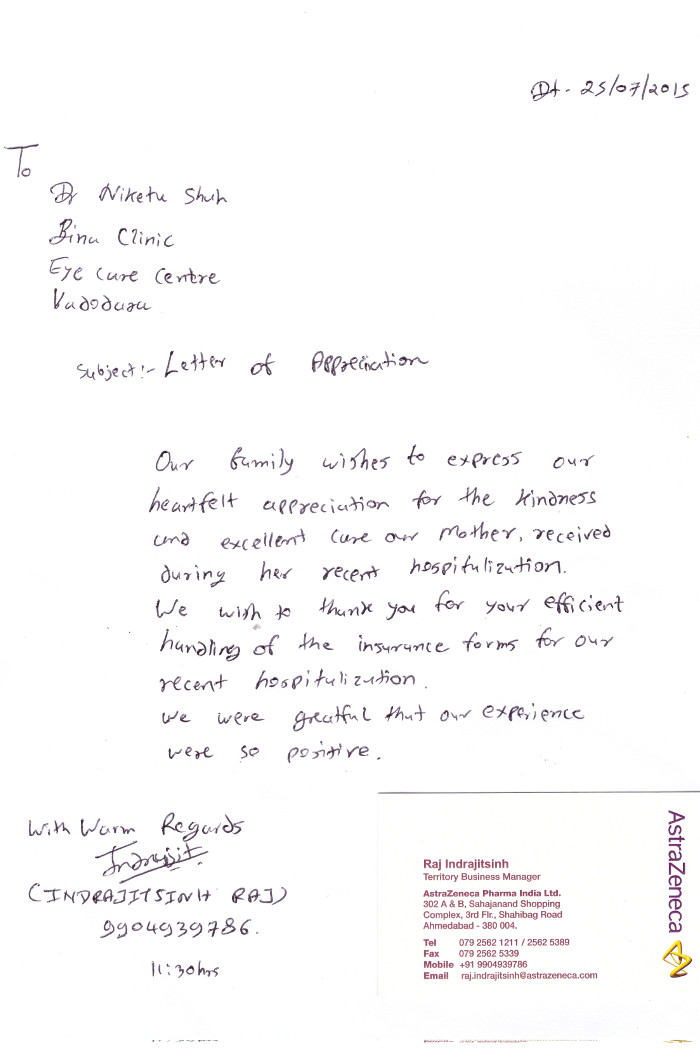 Dt- 25/07/2015
To
Dr Niketu Shuh
Binu Clinic
Eye Cure Centre
Vadodara
Subject:- Letter of Appreciation
Our family wishes to express our
heartfelt appreciation for the kindness
and excellent care our Mother, received
during her recent hospitulizution.
We wish to thank you for your efficient
handling of the insurance forms for our
recent hospitulizution.
We were greatful that our experience
were so positive.
With Warm Regards
Indrajit
(INDRAJITSINH RAJ)
9904939786.
11:30hrs
AstraZeneca
Raj Indrajitsinh
Territory Business Manager
AstraZeneca Pharma India Ltd.
302 A & B, Sahajanand Shopping
Complex, 3rd Flr., Shahibag Road
Ahmedabad - 380 004.
Tel 079 2562 1211 / 2562 5389
Fax 079 2562 5339
Mobile +91 9904939786
Email raj.indrajitsinh@astrazeneca.com